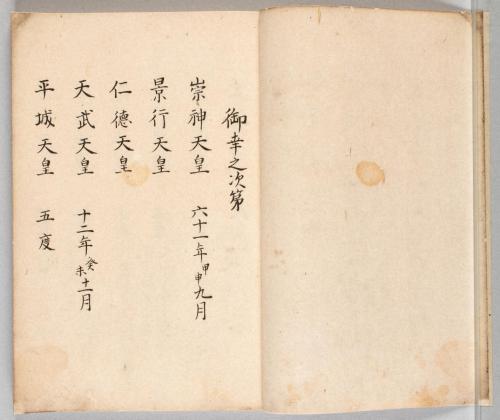 御幸之次第
崇神天皇 六十一年甲申九月
景行天皇
仁徳天皇
天武天皇 十二年癸未十一月
平城天皇 五度